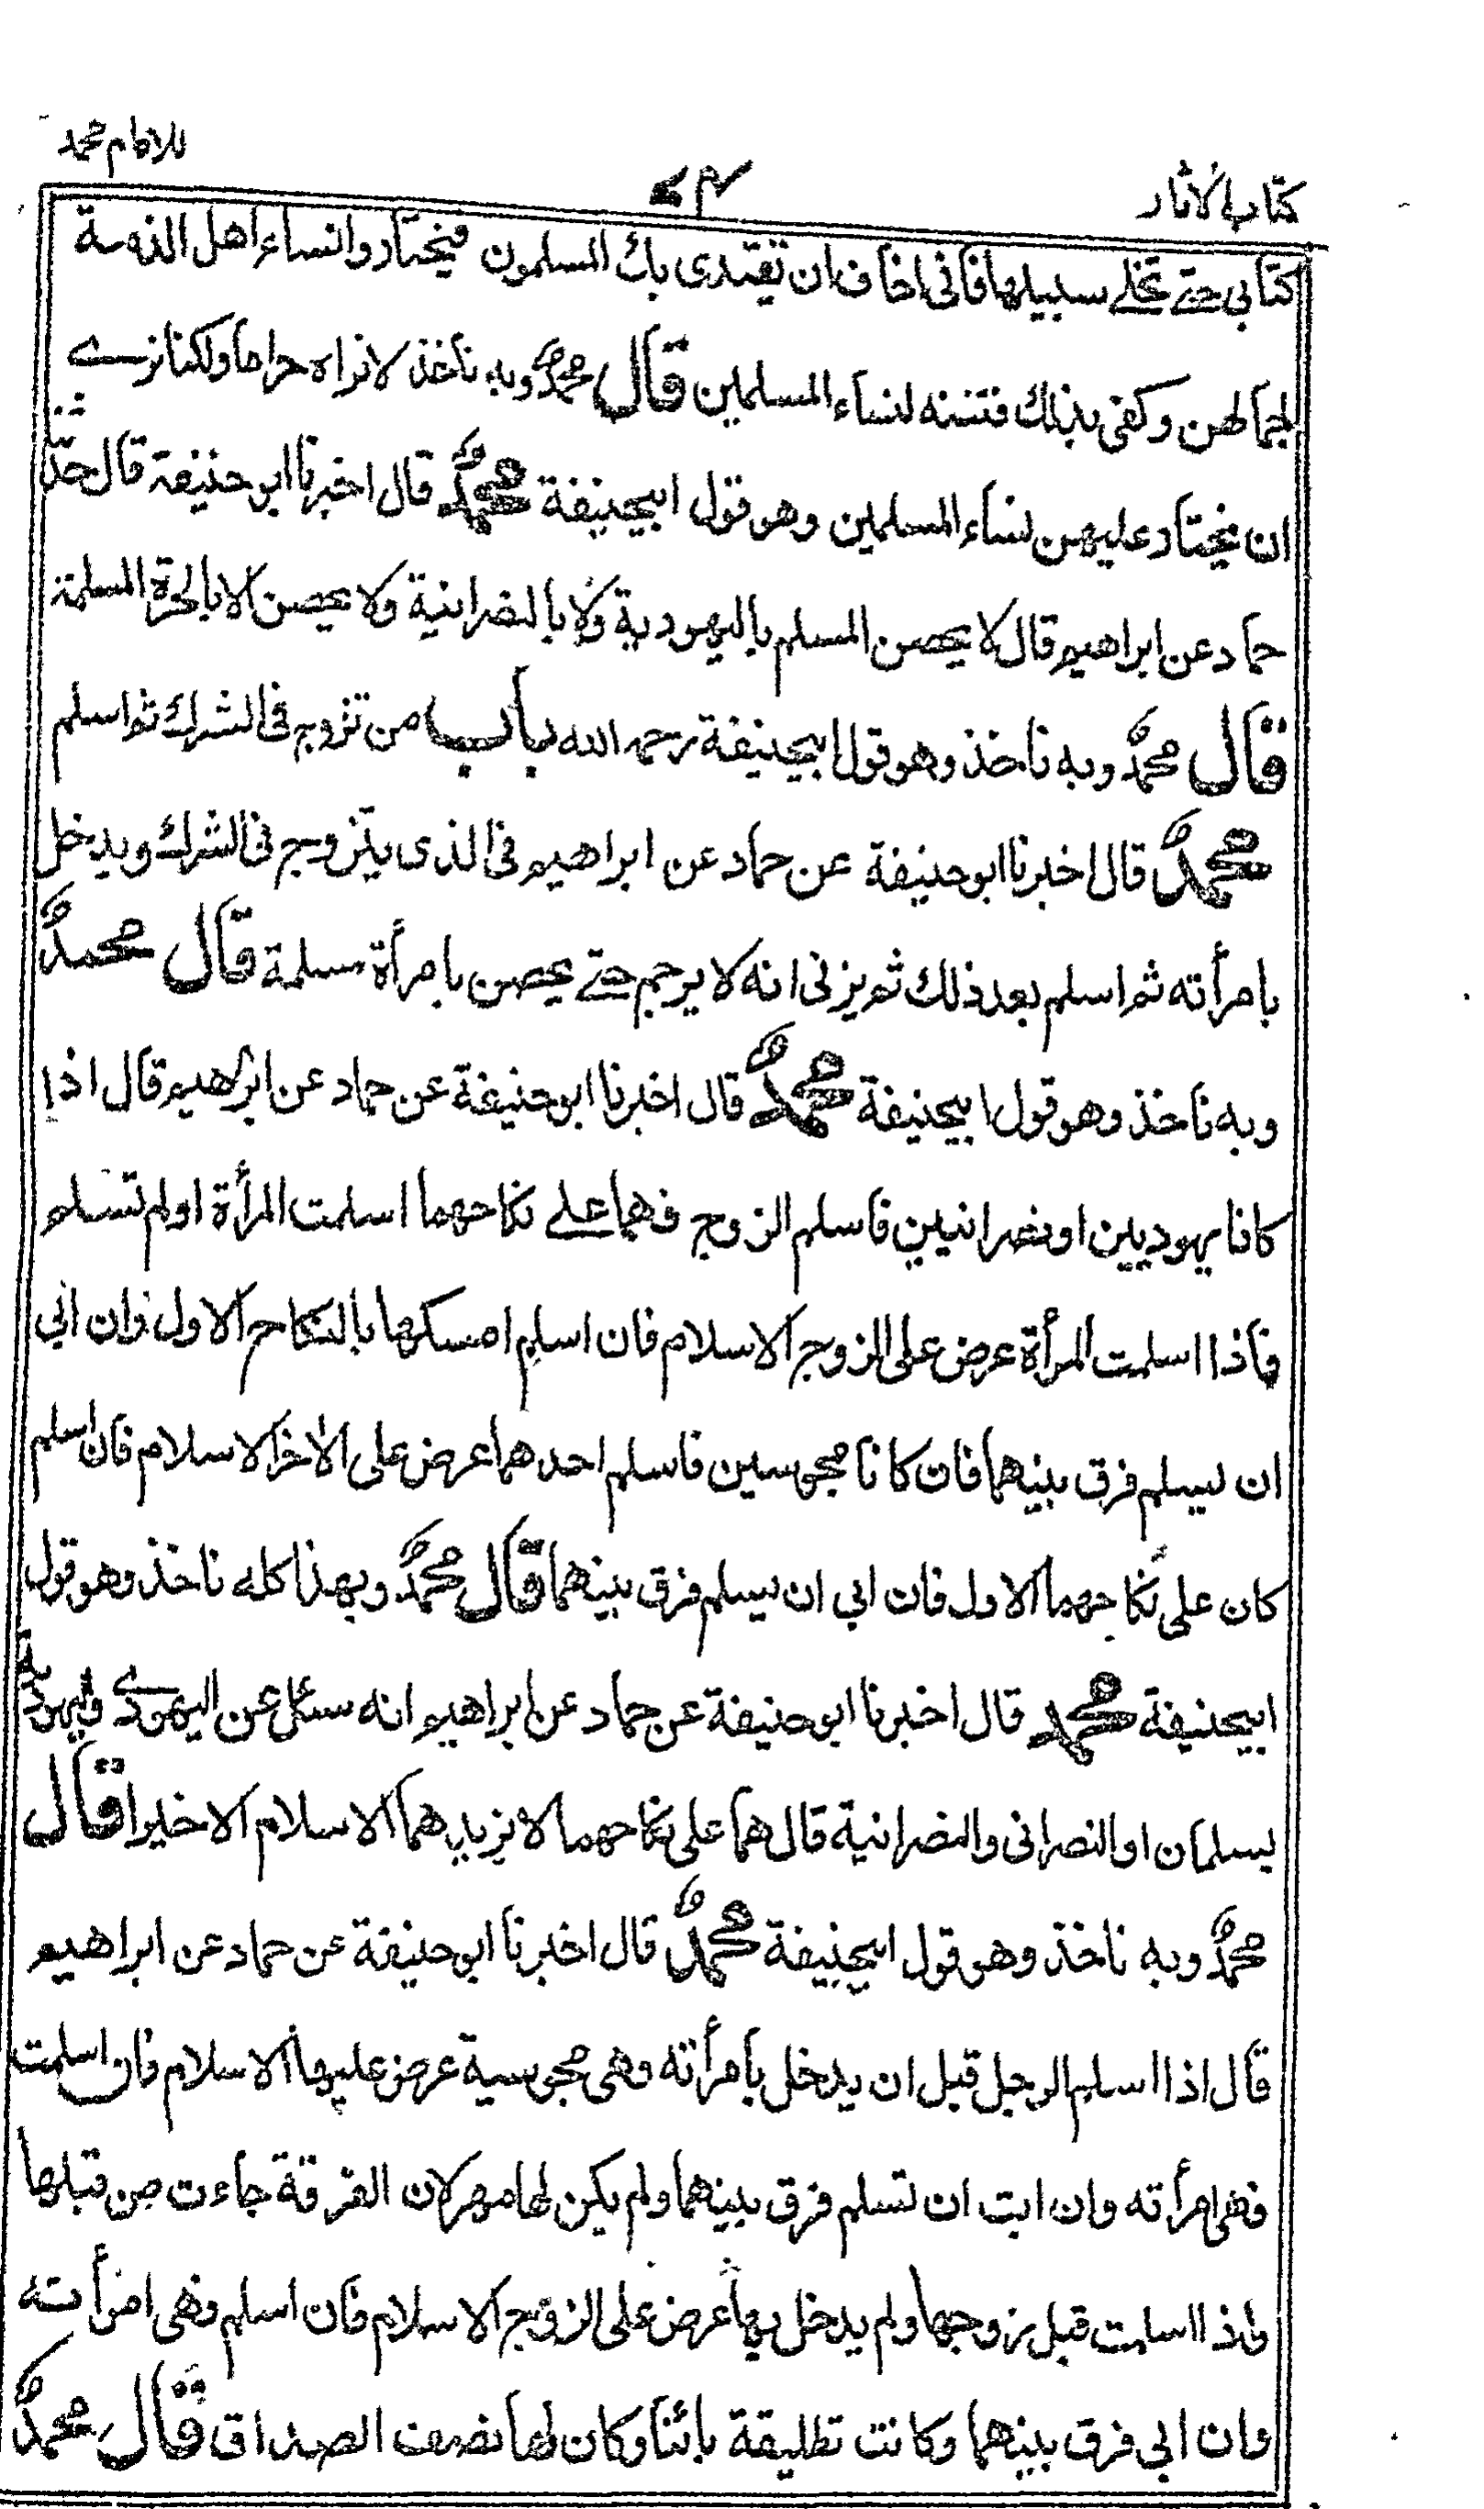 كتاب الآثار ٧٤ للامام محمد
كتابي حتى تخلے سبيلها فاني اخاف ان يقتدى بك المسلمون فيختاروا نساء اهل الذمة
لجمالهن وكفى بذلك فتنة لنساء المسلمين قال محمد وبه ناخذ لا نراه حراما ولكنا نرے
ان يختار عليهن نساء المسلمين وهو قول ابيحنيفة محمد قال اخبرنا ابو حنيفة قال حدثنا
حماد عن ابراهيم قال لا يحصن المسلم باليهودية ولا بالنصرانية ولا يحصن الا بالحرة المسلمة
قال محمد وبه ناخذ وهو قول ابيحنيفة رحمه الله باب من تزوج في الشرك ثم اسلم
محمد قال اخبرنا ابو حنيفة عن حماد عن ابراهيم فى الذى يتزوج فى الشرك ويدخل
بامرأته ثم اسلم بعد ذلك ثم يزنى انه لا يرجم حتے يحصن بامرأة مسلمة قال محمد
وبه ناخذ وهو قول ابيحنيفة محمد قال اخبرنا ابو حنيفة عن حماد عن ابراهيم قال اذا
كانا يهوديين او نصرانيين فاسلم الزوج فهما علے نكاحهما اسلمت المرأة اولم تسلم
فاذا اسلمت المرأة عرض على الزوج الاسلام فان اسلم امسكها بالنكاح الاول وان ابى
ان يسلم فرق بينهما فان كانا مجوسين فاسلم احدهما عرض على الآخر الاسلام فان اسلم
كان على نكاحهما الاول فان ابى ان يسلم فرق بينهما قال محمد وبهذا كله ناخذ وهو قول
ابيحنيفة محمد قال اخبرنا ابو حنيفة عن حماد عن ابراهيم انه سئل عن اليهودى واليهودية
يسلمان او النصرانى والنصرانية قال هما على نكاحهما لا يزيدهما الاسلام الا خيرا قال
محمد وبه ناخذ وهو قول ابيحنيفة محمد قال اخبرنا ابو حنيفة عن حماد عن ابراهيم
قال اذا اسلم الرجل قبل ان يدخل بامرأته وهى مجوسية عرض عليها الاسلام فان اسلمت
فهى امرأته وان ابت ان تسلم فرق بينهما ولم يكن لها مهر لان الفرقة جاءت من قبلها
واذا اسلمت قبل زوجها ولم يدخل بها عرض على الزوج الاسلام فان اسلم فهى امرأته
وان ابى فرق بينهما وكانت تطليقة بائنا وكان لها نصف الصداق قال محمد